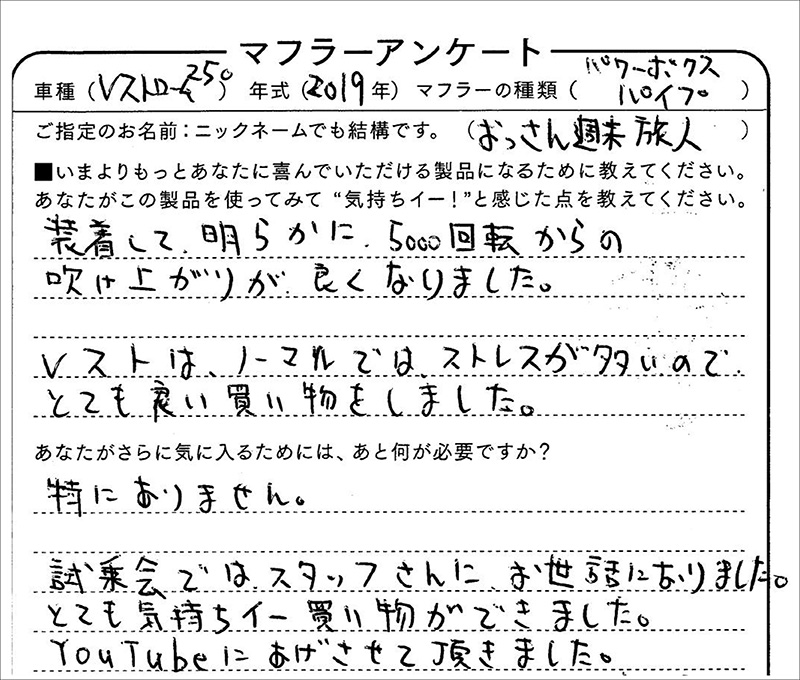 マフラーアンケート
車種（Vストローム250） 年式（2019年） マフラーの種類（パワーボックスパイプ）
ご指定のお名前：ニックネームでも結構です。（おっさん週末旅人）
■いまよりもっとあなたに喜んでいただける製品になるために教えてください。
あなたがこの製品を使ってみて “気持ちイー！”と感じた点を教えてください。
装着して、明らかに、5000回転からの
吹け上がりが、良くなりました。
Vストは、ノーマルでは、ストレスが多いので、
とても良い買い物をしました。
あなたがさらに気に入るためには、あと何が必要ですか？
特にありません。
試乗会では、スタッフさんに、お世話になりました。
とても気持ちイー買い物ができました。
YouTubeにあげさせて頂きました。